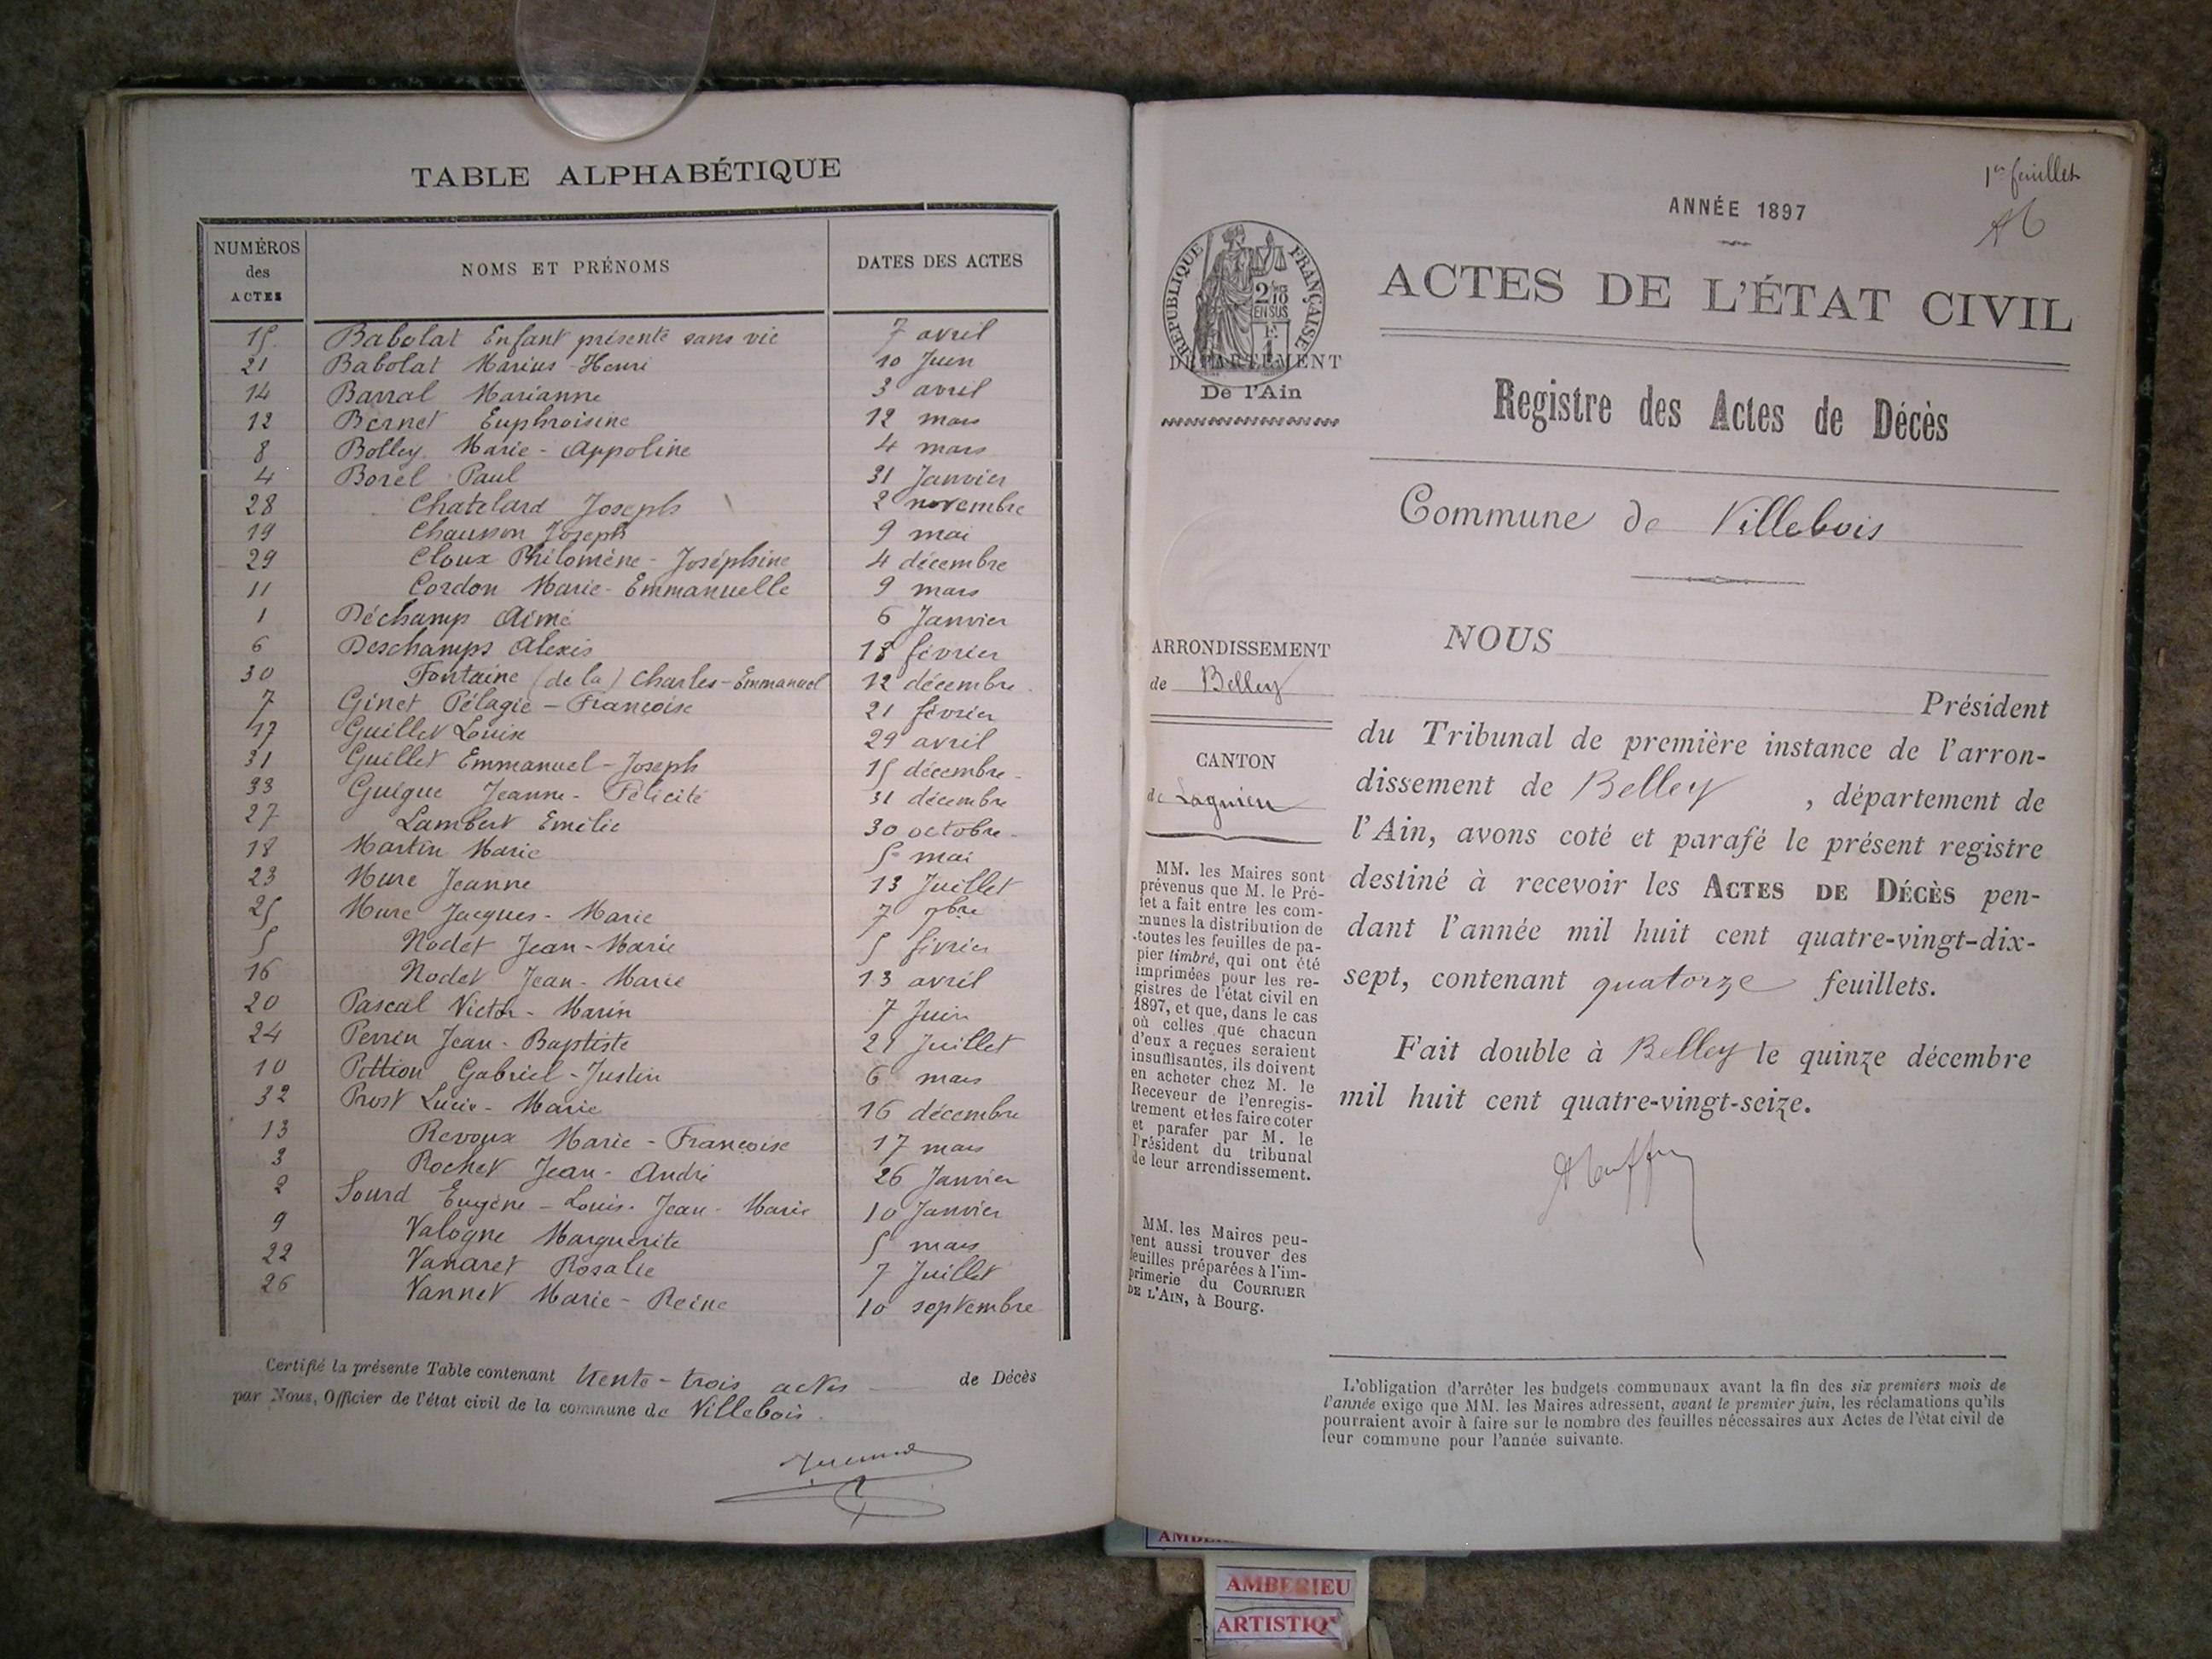 TABLE ALPHABÉTIQUE
NUMÉROS des ACTES NOMS ET PRÉNOMS DATES DES ACTES
15 Babolat Enfant présenté sans vie 7 avril
21 Babolat Marius-Henri 10 Juin
14 Barral Marianne 3 avril
12 Bernet Euphroisine 12 mars
8 Bolley Marie-Appoline 4 mars
4 Borel Paul 31 Janvier
28 Chatelard Joseph 2 novembre
19 Chausson Joseph 9 mai
29 Cloux Philomène-Joséphine 4 décembre
11 Cordon Marie-Emmanuelle 9 mars
1 Déchamp Aimé 6 Janvier
6 Deschamps Alexis février
30 Fontaine (de la) Charles-Emmanuel 12 décembre
7 Ginet Pélagie-Françoise 21 février
17 Guillet Louise 29 avril
31 Guillet Emmanuel-Joseph 15 décembre
33 Guigue Jeanne-Félicité 31 décembre
27 Lambert Emélie 30 octobre
18 Martin Marie 5 mai
23 Mure Jeanne 13 Juillet
25 Mure Jacques-Marie 7 7bre
5 Nodet Jean-Marie 5 février
16 Nodet Jean-Marie 13 avril
20 Pascal Victor-Marin 7 Juin
24 Perrin Jean-Baptiste 21 Juillet
10 Pottion Gabriel-Justin 6 mars
32 Prost Lucie-Marie 16 décembre
13 Revoux Marie-Françoise 17 mars
3 Rochet Jean-André 26 Janvier
2 Sourd Eugène-Louis-Jean-Marie 10 Janvier
9 Valogne Marguerite 5 mars
22 Vanaret Rosalie 7 Juillet
26 Vannet Marie-Reine 10 septembre
Certifié la présente Table contenant trente-trois actes de Décès
par Nous, Officier de l'état civil de la commune de Villebois.
1er feuillet
ANNÉE 1897
RÉPUBLIQUE FRANÇAISE
2/10 EN SUS
DÉPARTEMENT
De l'Ain
ACTES DE L'ÉTAT CIVIL
Registre des Actes de Décès
Commune de Villebois
ARRONDISSEMENT
de Belley
CANTON
de Lagnieu
MM. les Maires sont
prévenus que M. le Pré-
fet a fait entre les com-
munes la distribution de
toutes les feuilles de pa-
pier timbré, qui ont été
imprimées pour les re-
gistres de l'état civil en
1897, et que, dans le cas
où celles que chacun
d'eux a reçues seraient
insuffisantes, ils doivent
en acheter chez M. le
Receveur de l'enregis-
trement et les faire coter
et parafer par M. le
Président du tribunal
de leur arrondissement.
MM. les Maires peu-
vent aussi trouver des
feuilles préparées à l'im-
primerie du COURRIER
DE L'AIN, à Bourg.
NOUS
Président
du Tribunal de première instance de l'arron-
dissement de Belley , département de
l'Ain, avons coté et parafé le présent registre
destiné à recevoir les ACTES DE DÉCÈS pen-
dant l'année mil huit cent quatre-vingt-dix-
sept, contenant quatorze feuillets.
Fait double à Belley le quinze décembre
mil huit cent quatre-vingt-seize.
L'obligation d'arrêter les budgets communaux avant la fin des six premiers mois de
l'année exige que MM. les Maires adressent, avant le premier juin, les réclamations qu'ils
pourraient avoir à faire sur le nombre des feuilles nécessaires aux Actes de l'état civil de
leur commune pour l'année suivante.
AMBERIEU
ARTISTIQ